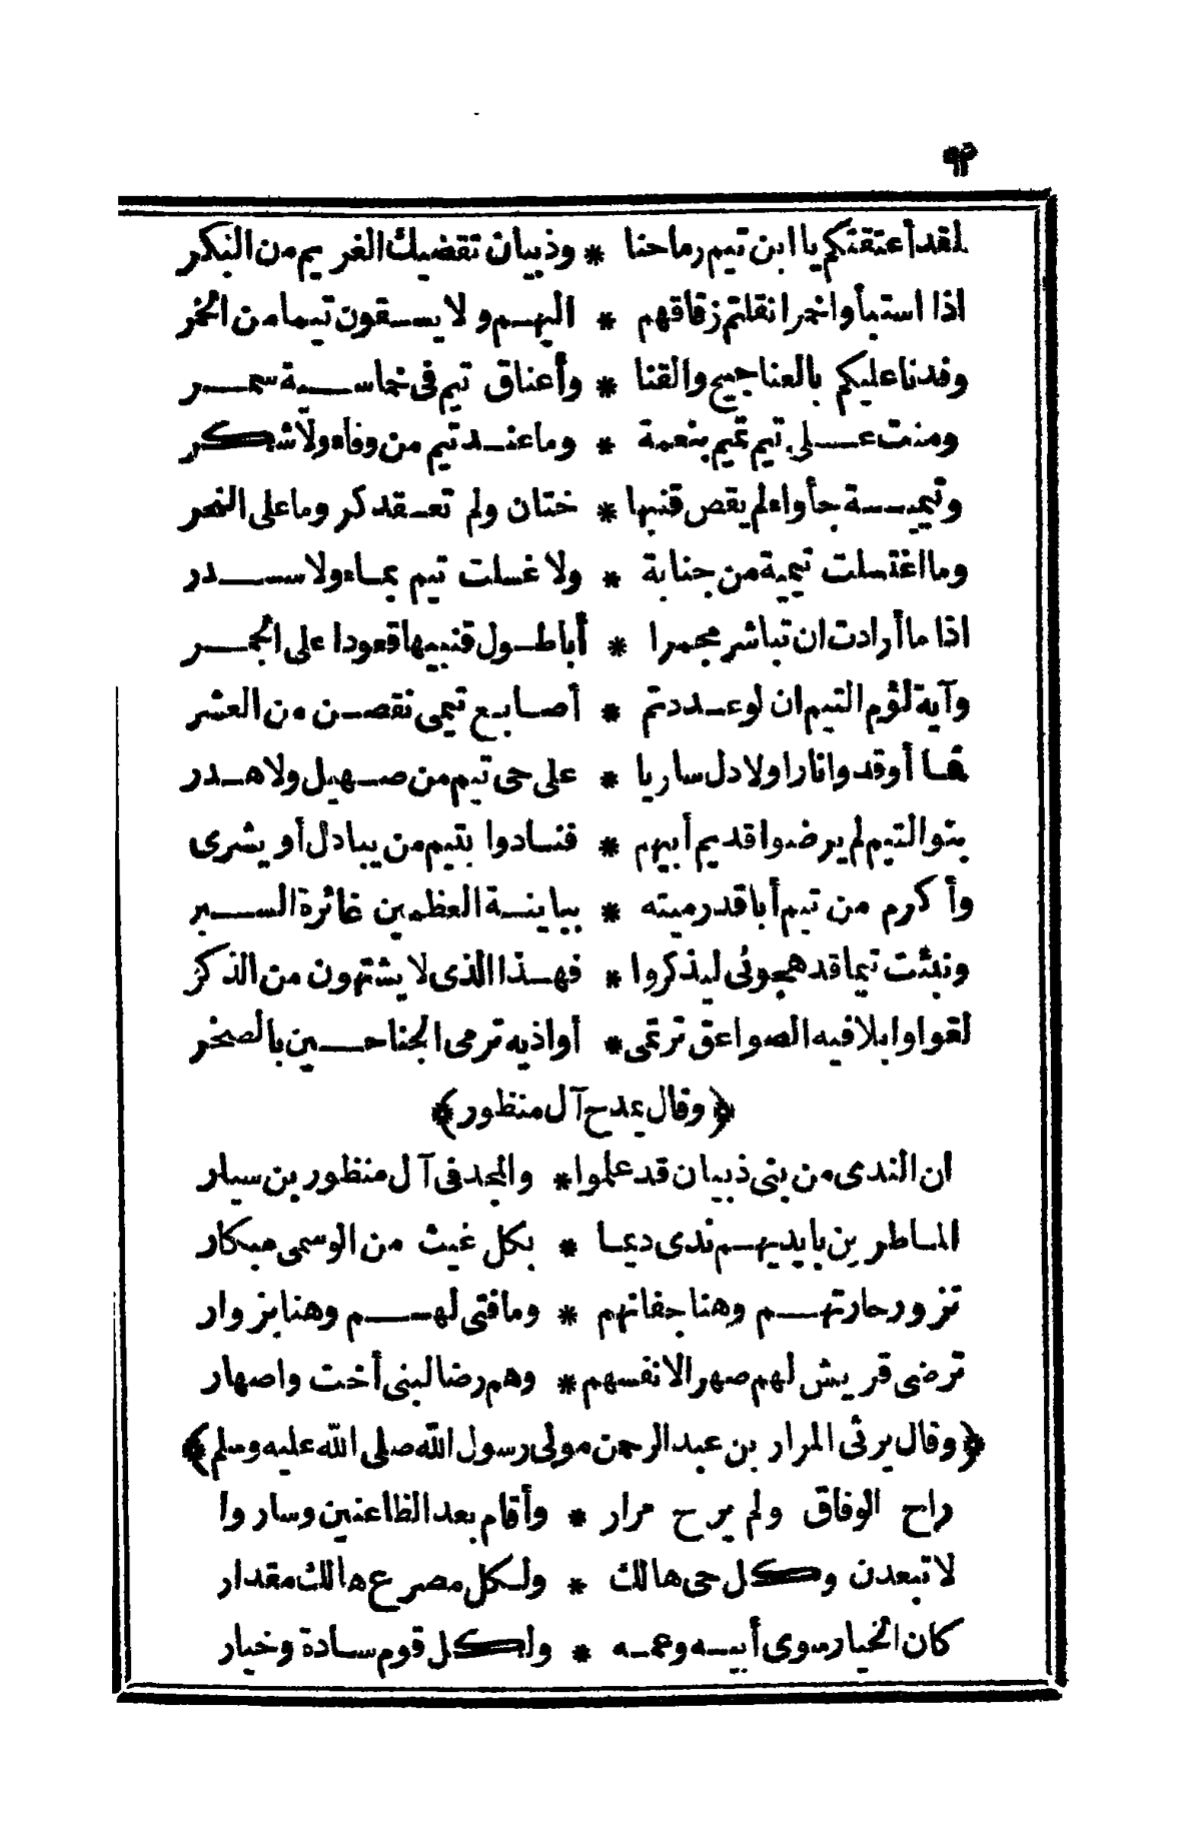 ٩٢
لقد أعتقتكم يا ابن تيم رماحنا * وذبيان تقضيك الغريم من البكر
اذا استبأوا خمرا نقلتم زقاقهم * اليهم ولا يسقون تيما من الخمر
وفدنا عليكم بالعناجيج والقنا * وأعناق تيم فى خماسية سمر
ومنت على تيم تميم بنعمة * وما عند تيم من وفاء ولا شكر
وتيمية جأواء لم يقص قنبها * ختان ولم تعقد كر وما على النحر
وما اغتسلت تيمية من جنابة * ولا غسلت تيم بماء ولا سدر
اذا ما أرادت ان تباشر مجمرا * أبا طول قنبيها قعودا على الجمر
وآية لؤم التيم ان لو عددتم * أصابع تيمى نقصن من العشر
فما أوقدوا نارا ولا دل ساريا * على حى تيم من صهيل ولا هدر
بنو التيم لم يرضوا قديم أبيهم * فنادوا بتيم من يبادل أو يشرى
وأكرم من تيم أبا قد رميته * بباينة العظمين غائرة السبر
ونبئت تيما قد هجونى ليذكروا * فهذا الذى لا يشتهون من الذكر
لقوا وابلا فيه الصواعق ترتمى * أواذيه ترمى الجناحين بالصخر
﴿وقال يمدح آل منظور﴾
ان الندى من بنى ذبيان قد علموا * والمجد فى آل منظور بن سيار
الماطرين بايديهم ندى ديما * بكل غيث من الوسمى مبكار
تزور جارتهم وهنا جفانهم * وما فتى لهم وهنا بزوار
ترضى قريش لهم صهرا لانفسهم * وهم رضا لبنى أخت واصهار
﴿وقال يرثى المرار بن عبد الرحمن مولى رسول الله صلى الله عليه وسلم﴾
راح الوفاق ولم يرح مرار * وأقام بعد الظاعنين وساروا
لا تبعدن وكل حى هالك * ولكل مصرع هالك مقدار
كان الخيار سوى أبيه وعمه * ولكل قوم سادة وخيار